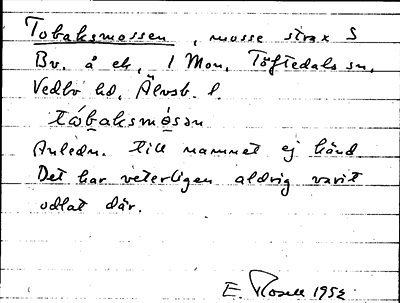 Tobaksmossen, mosse strax S
Bv. å ek, 1 Mon, Töftedals sn,
Vedbo hd, Älvsb. l.
tåbaksmósən
Anledn. till namnet ej känd
Det har veterligen aldrig varit
odlat där.
E. Rosell 1952